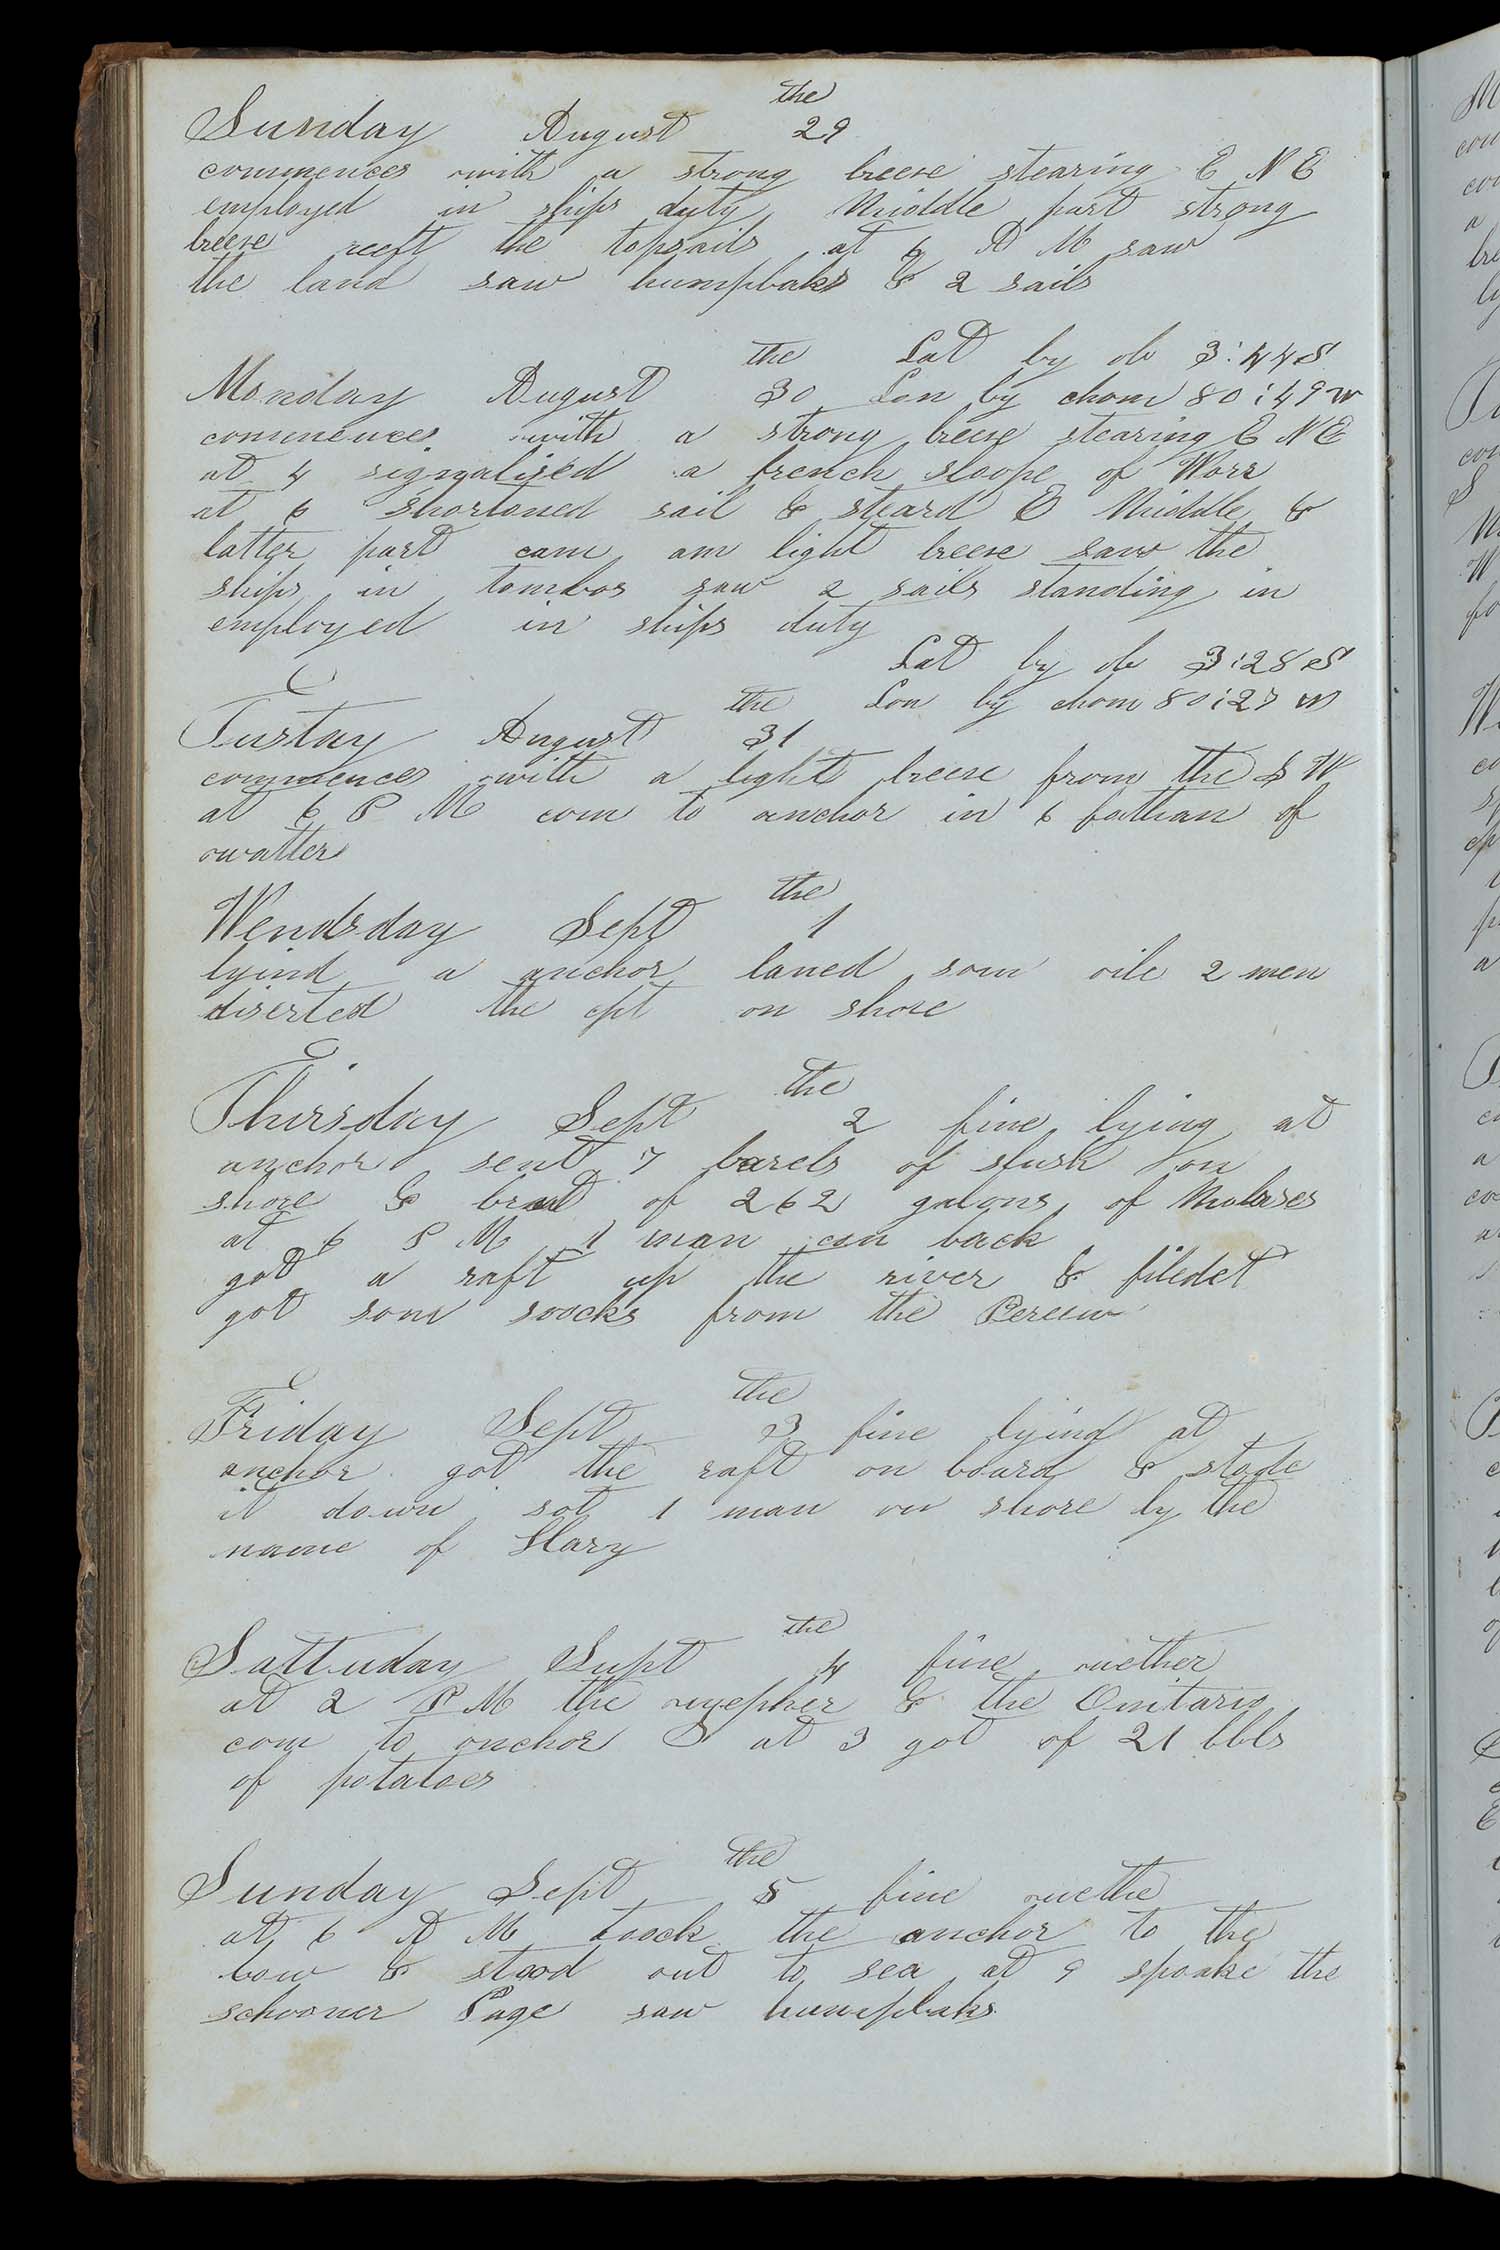 Sunday August the 29
commences with a strong breese stearing E N E
employed in ships duty Middle part strong
breese reeft the topsails at 6 A M saw
the land saw humpbaks & 2 sails
Lat by ob 3:44 S
Monday August the 30 Lon by chom 80:49 w
commences with a strong breese stearing E N E
at 4 signalised a french sloope of Warr
at 6 shortoned sail & steard E Middle &
latter part cam am light breese saw the
ships in tombos saw 2 sails standing in
employed in ships duty
Lat by ob 3:28 S
Lon by chom 80:27 w
Tustay August the 31
commences with a light breese from the S W
at 6 P M com to anchor in 6 fatham of
watter
Wendsday Sept the 1
lyind a anchor laned som oile 2 men
diserted the cpt on shore
Thirsday Sept the 2 fine lying at
anchor sent 7 barels of slush on
shore & of 262 galons of Molases
at 6 P M 1 man com back
got a raft up the river & filedet
got som soocks from the
Friday Sept the 3 fine lyind at
anchor got the raft on board & stode
it down sot 1 man on shore by the
name of
Sattuday Supt the 4 fine wether
at 2 P M the & the Onitario
com to anchor at 3 got of 21 bbls
of potatoes
Sunday Sept the 5 fine wethe
at 6 A M toock the anchor to the
bow & stood out to sea at 9 spoake the
schooner Page saw humpbaks